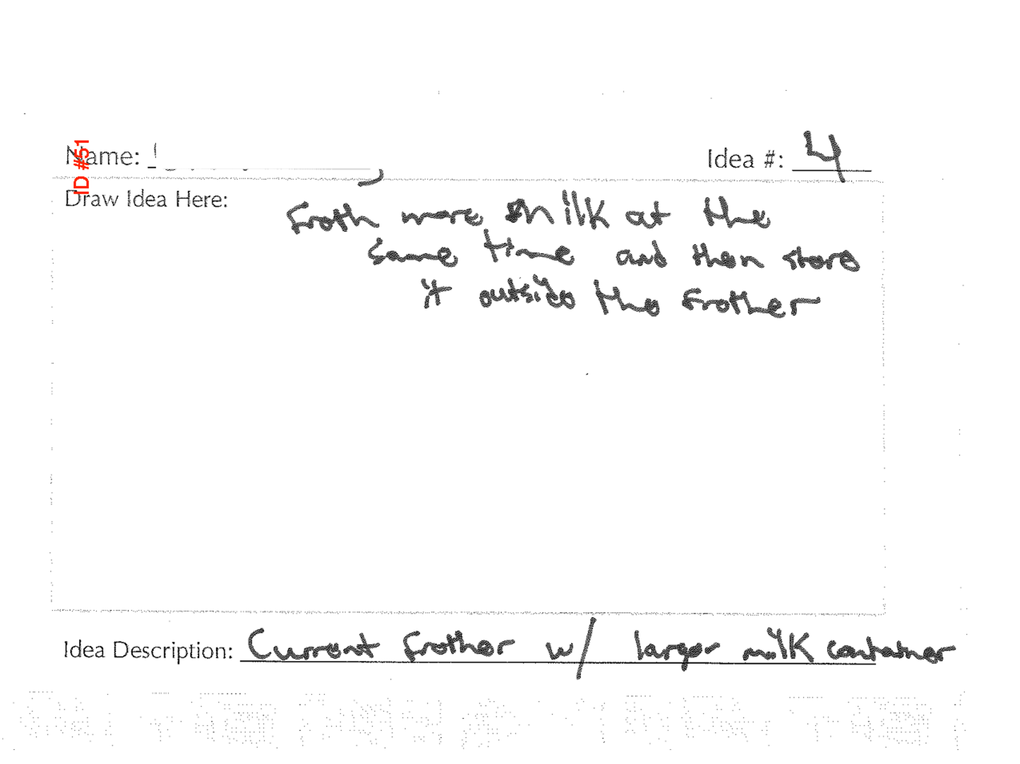 ID #51
Name:
Idea #: 4
Draw Idea Here:
Froth more milk at the
same time and then store
it outside the frother
Idea Description: Current frother w/ larger milk container